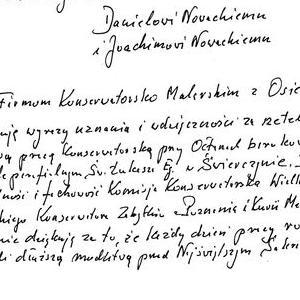 Danielowi Novackiemu
i Joachimowi Novackiemu
Firmom Konserwatorsko Malerskim z Osie
ują wyrazy uznania i wdzięczności za rzetel
ą pracę konserwatorską przy Ołtarzu
Św. Łukasza Ej. w Świerczynie.
ność i fachowość Komisja Konserwatorska Wielk
kiego Konserwatora Zabytków z Poznania i Kurii Me
nie dziękuję za to, że każdy dzień pracy
li dłuższą modlitwą przed Najświętszym Sakra